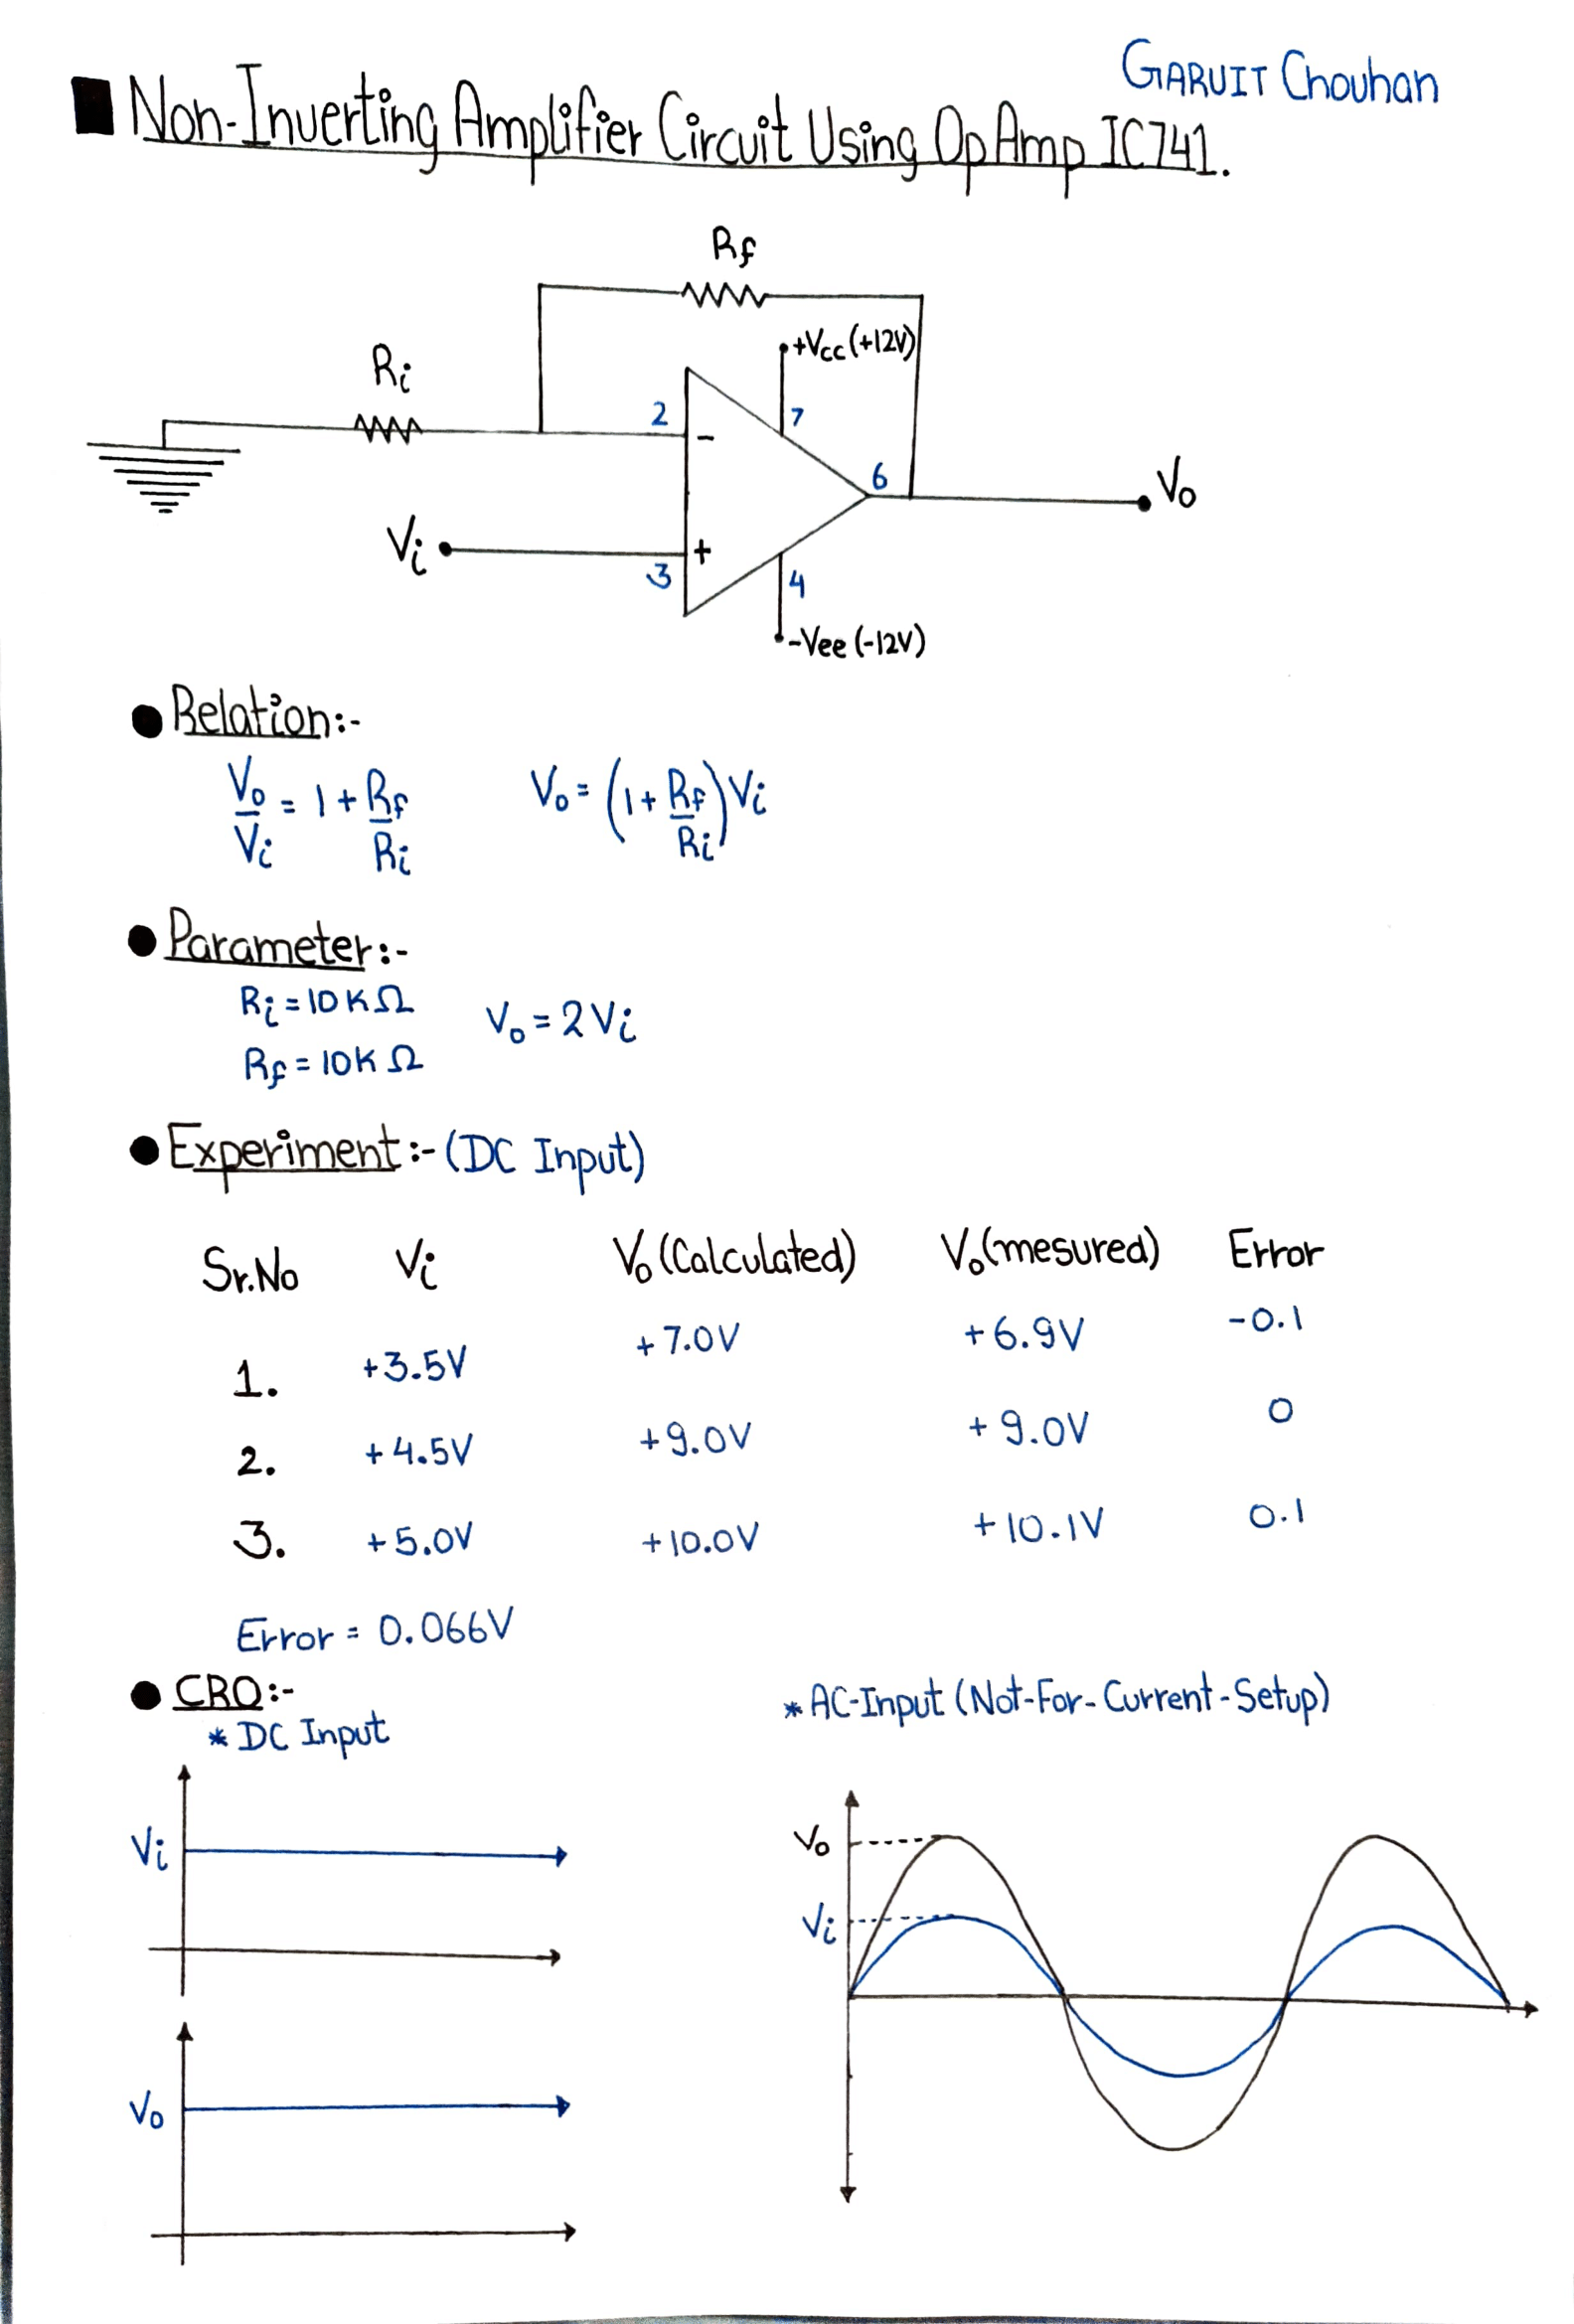 GARUIT Chouhan
Non-Inverting Amplifier Circuit Using OpAmp IC741.
Rf
+Vcc (+12V)
Ri
2
7
-
6
Vo
Vi
+
3
4
-Vee (-12V)
Relation:-
Vo/Vi = 1 + Rf/Ri Vo = (1 + Rf/Ri) Vi
Parameter:-
Ri = 10KΩ
Vo = 2Vi
Rf = 10KΩ
Experiment:- (DC Input)
Sr.No Vi Vo (Calculated) Vo (mesured) Error
1. +3.5V +7.0V +6.9V -0.1
2. +4.5V +9.0V +9.0V 0
3. +5.0V +10.0V +10.1V 0.1
Error = 0.066V
CRO:-
* DC Input
* AC-Input (Not-For-Current-Setup)
Vi
Vo
Vo
Vi